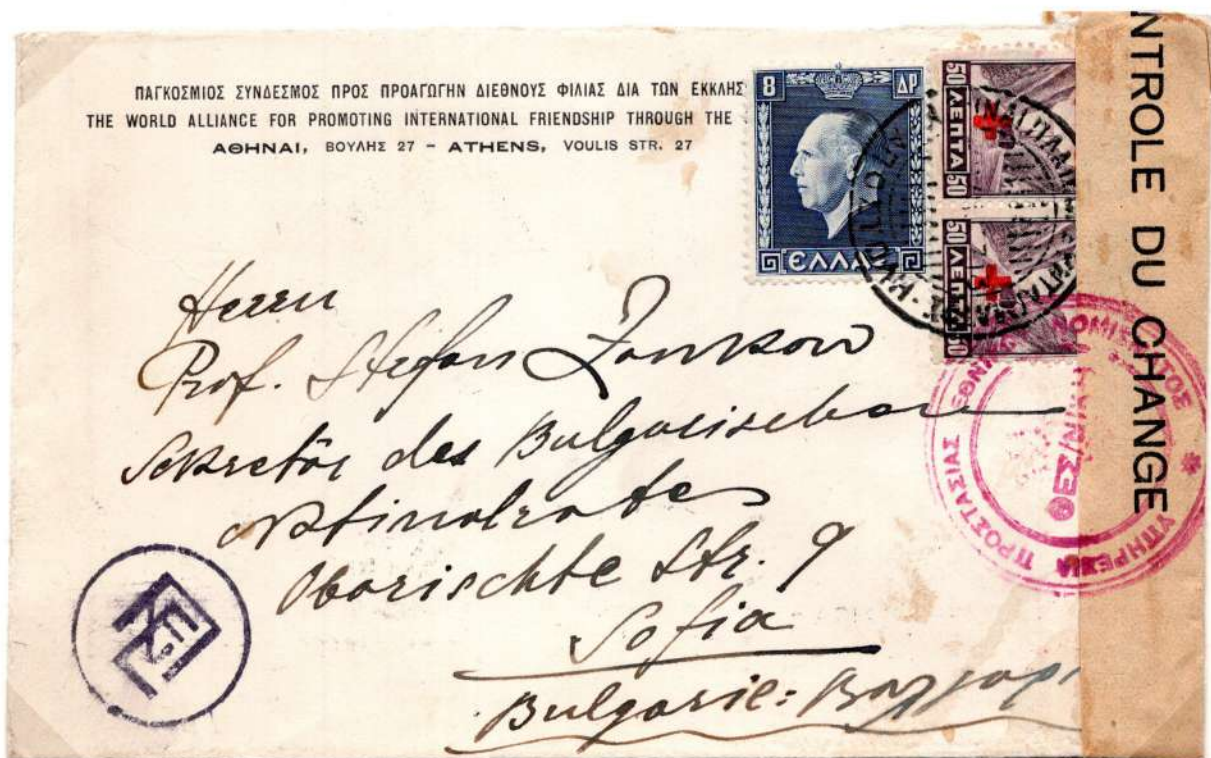 ΠΑΓΚΟΣΜΙΟΣ ΣΥΝΔΕΣΜΟΣ ΠΡΟΣ ΠΡΟΑΓΩΓΗΝ ΔΙΕΘΝΟΥΣ ΦΙΛΙΑΣ ΔΙΑ ΤΩΝ ΕΚΚΛΗΣ
THE WORLD ALLIANCE FOR PROMOTING INTERNATIONAL FRIENDSHIP THROUGH THE
ΑΘΗΝΑΙ, ΒΟΥΛΗΣ 27 – ATHENS, VOULIS STR. 27
8 ΔΡ
ΕΛΛΑ
50 ΛΕΠΤΑ 50
50 ΛΕΠΤΑ 50
NTROLE DU CHANGE
ΥΠΗΡΕΣΙΑ ΠΡΟΣΤΑΣΙΑΣ ΕΘΝΙΚΟΥ ΝΟΜΙΣΜΑΤΟΣ
Herrn
Prof. Stefan Zankow
Sekretär des Bulgarischen
Oborischte Str. 9
Sofia
Bulgarie: Βουλγαρι